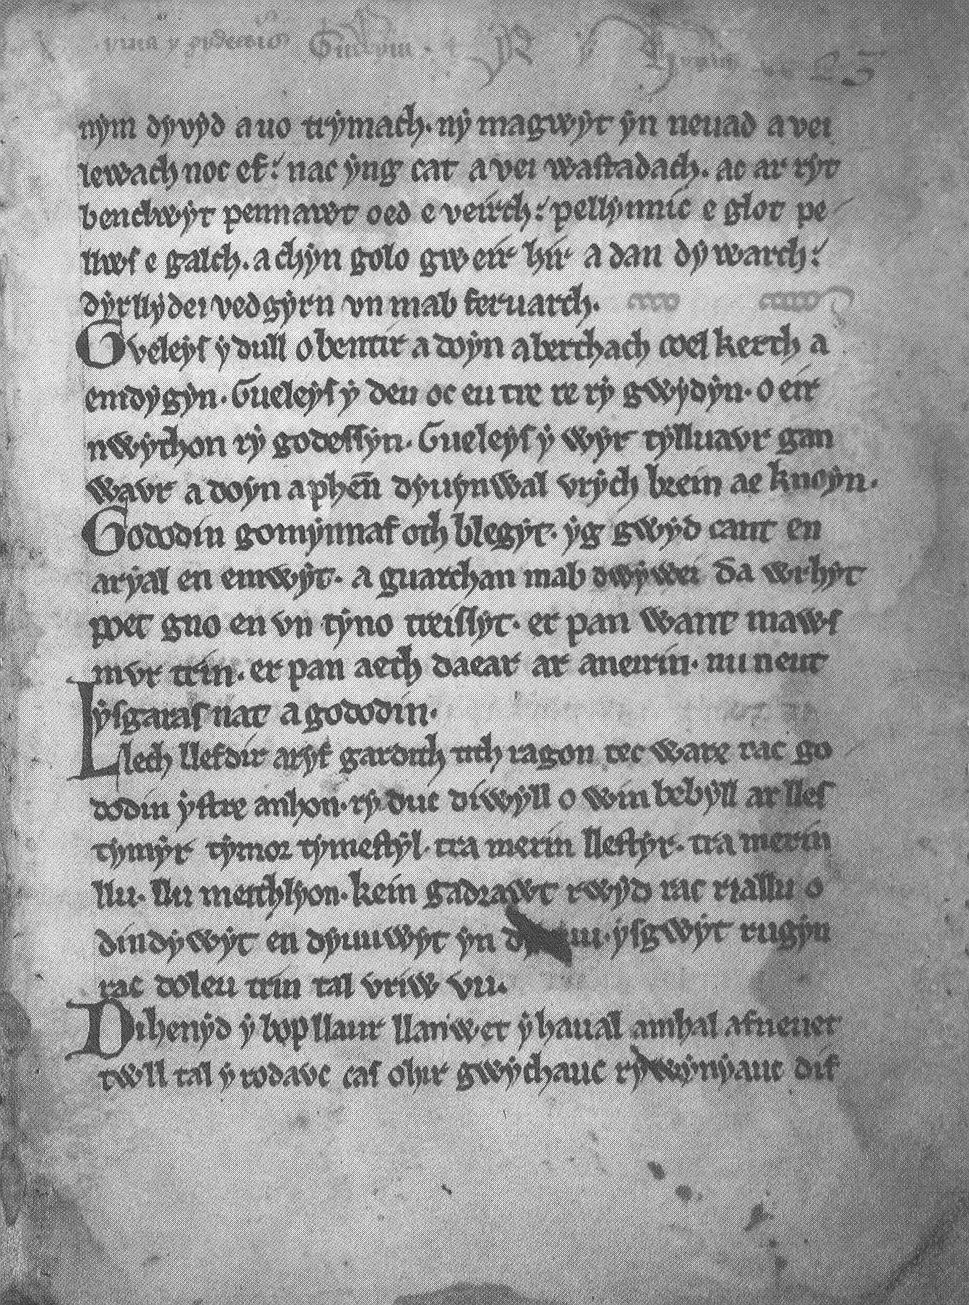 nẏm dẏvẏd a uo trẏmach. nẏ magwẏt ẏn neuad a vei
lewach noc ef. nac ẏng cat a vei wastadach. ac ar rẏt
benclwẏt pennawt oed e veirch. pellẏnnic e glot pe
llws e galch. a chẏn golo gweir hir a dan dẏwarch.
dẏrllẏdei vedgẏrn vn mab feruarch.
Gveleẏs ẏ dull o bentir a doẏn aberthach coel kerth a
emdygẏn. Gueleẏs ẏ deu oc eu tre re rẏ gwẏdẏn. o eir
nwẏthon rẏ godessẏn. Gueleẏs ẏ wẏr tẏlluavr gan
wavr a doẏn a phen dẏuẏnwal vrẏch brein ae knoẏn.
Gododin gomẏnnaf oth blegẏt. ẏg gwẏd cant en
arẏal en emwẏt. a guarchan mab dwẏwei da wrhẏt
poet gno en vn tẏno treissẏt. er pan want maws
mvr trin. er pan aeth daear ar aneirin. nu neut
ẏsgaras nat a gododin.
Llech llefdir arẏf gardith tith ragon tec ware rac go
dodin ẏstre anhon. rẏ duc diwẏll o win bebẏll ar lles
tẏmẏr tẏmor tẏmestẏl. tra merin llestẏr. tra merin
llu. llu meithlẏon. kein gadrawt rwẏd rac riallu o
dindẏwẏt en dẏuuwẏt ẏn ẏsgwẏt rugẏn
rac doleu trin tal vriw vu.
Dihenẏd ẏ bop llaur llanw et ẏ haual amhal afneuet
twll tal ẏ rodavc cas ohir gwẏchauc rẏwẏnẏauc dif